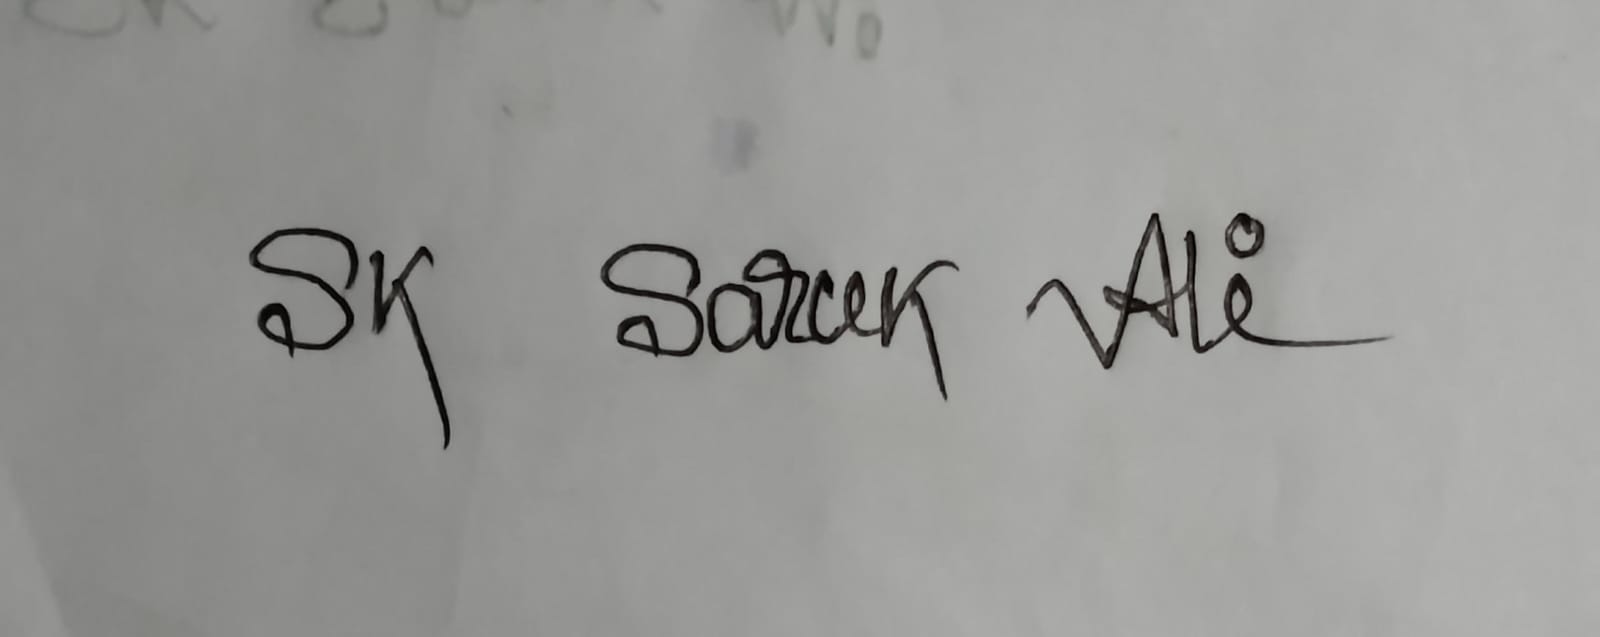 SK Sarcek Ali